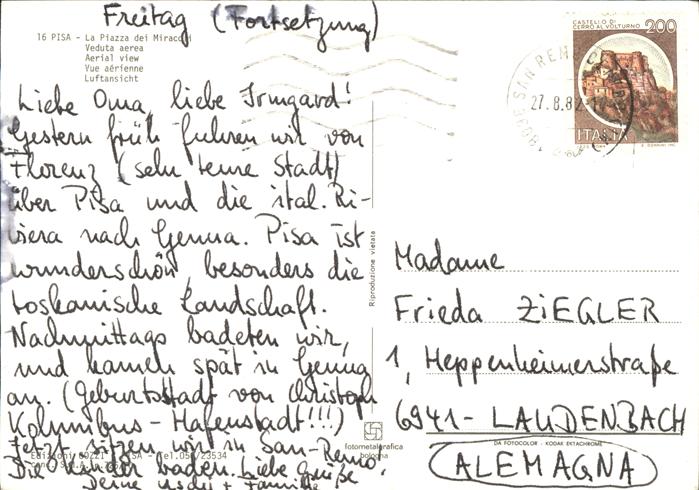 Freitag (Fortsetzung)
16 PISA - La Piazza dei Miracoli
Veduta aerea
Aerial view
Vue aérienne
Luftansicht
Liebe Oma, liebe Irmgard!
Gestern früh fuhren wir von
Florenz (sehr teure Stadt)
über Pisa und die ital. Ri-
viera nach Genua. Pisa ist
wunderschön, besonders die
toskanische Landschaft.
Nachmittags badeten wir,
und kamen spät in Genua
an. (Geburtsstadt von Christoph
Kolumbus - Hafenstadt!!!)
Jetzt sitzen wir in San-Remo.
Die Kinder baden. Liebe Grüße
Deine Uschi + Familie
Edizioni PISA - Tel. 050/23534
Riproduzione vietata
fotometalgrafica
bologna
CASTELLO DI
CERRO AL VOLTURNO
200
ITALIA
SAN REMO
27.8.82
Madame
Frieda ZIEGLER
1, Heppenheimerstraße
6941 - LAUDENBACH
DA FOTOCOLOR - KODAK EKTACHROME
ALEMAGNA